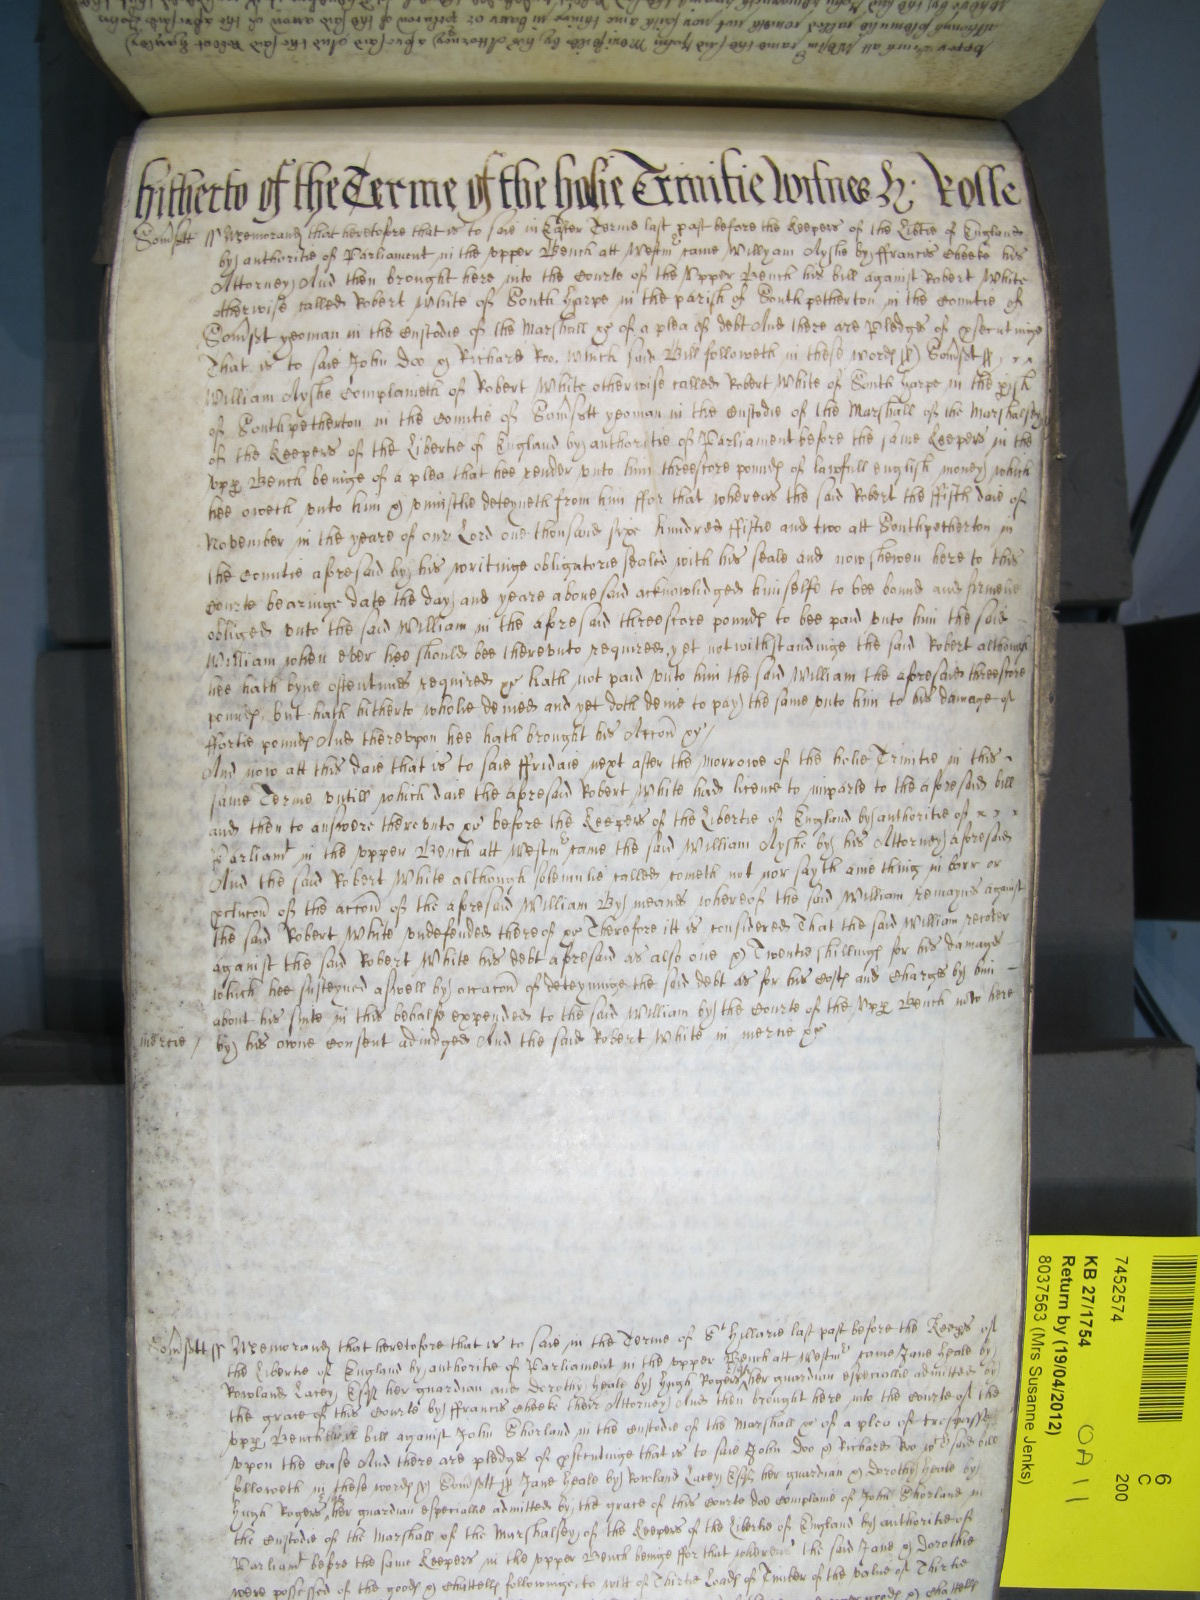 hitherto of the Terme of the holie Trinitie Witnes H: Rolle
Somsett ss Memorand that heretofore that is to saie in Easter Terme last past before the Keepers of the Libtie of England
by authoritie of Parliament in the upper Bench att Westm came Willyam Ayshe by ffrancis Cheeke his
Attorney And then brought here into the Courte of the Upper Bench his bill against Robert White
otherwise called Robert White of South Harpe in the parish of Southpetherton in the Countie of
Somsett yeoman in the Custodie of the Marshall &c of a plea of debt And there are Pledges of psecutinge
That is to saie John Doo & Richard Roo. Which said Bill followeth in these words ss Somsett ss
William Ayshe Complaineth of Robert White otherwise called Robert White of South Harpe in the pish
of Southpetherton in the Countie of Somsett yeoman in the Custodie of the Marshall of the Marshalsey
of the Keepers of the Libertie of England by authoritie of Parliament before the same Keepers in the
upp Bench beinge of a plea that hee render unto him threescore pounds of lawfull english money which
hee oweth unto him & uniustlie deteyneth from him ffor that whereas the said Robert the ffifth daie of
November in the yeare of our Lord one thousand sixe hundred ffiftie and two att Southpetherton in
the Countie aforesaid by his writinge obligatorie sealed with his seale and now shewen here to this
Courte bearinge date the day and yeare abovesaid acknowledged himselfe to bee bound and firmelie
obliged unto the said William in the aforesaid threescore pounds to bee paid unto him the said
William when ever hee should bee thereunto required, yet notwithstandinge the said Robert although
hee hath byne oftentimes required &c hath not paid unto him the said William the aforesaid threescore
pounds, but hath hitherto wholie denied and yet doth denie to pay the same unto him to his damage of
ffortie pounds And thereupon hee hath brought his Accon &c
And now att this daie that is to saie ffridaie next after the morrowe of the holie Trinitie in this
same Terme untill which daie the aforesaid Robert White had licence to imparle to the aforesaid bill
and then to answere thereunto &c before the Keepers of the Libertie of England by authoritie of
Parliamt in the upper Bench att Westm came the said William Ayshe by his Attorney aforesaid
And the said Robert White although solemnlie called cometh not nor sayth anie thing in barr or
pclucon of the accon of the aforesaid William By meanes whereof the said William remayns against
the said Robert White undefended thereof &c Therefore itt is considered That the said William recover
against the said Robert White his debt aforesaid as also one & Twentie shillings for his damages
which hee susteyned aswell by occacon of deteyninge the said debt as for his Costs and Charges by him
about his suite in this behalfe expended to the said William by the Courte of the Upp Bench now here
mercie by his owne Consent adiudged And the said Robert White in mercie &c
Somsett ss Memorand that heretofore that is to saie in the Terme of St Hillarie last past before the Keeps of
the Libertie of England by authoritie of Parliament in the upper Bench att Westm came Jane Heale by
Rowland Lacey Esqr her guardian and Dorothy Heale by Hugh Rogers her guardian especiallie admitted by
the grace of this Courte by ffrancis Cheeke their Attorney And then brought here into the Courte of the
upp Bench their bill against John Shorland in the Custodie of the Marshall &c of a plea of trespasse
upon the Case And there are pledges of psecutinge that is to saie John Doo & Richard Roo wch said bill
followeth in these words ss Somsett ss Jane Heale by Rowland Lacey Esqr her guardian & Dorothy Heale by
Hugh Rogers her guardian especiallie admitted by the grace of this Courte doe complaine of John Shorland in
the Custodie of the Marshall of the Marshalsey of the Keepers of the Libertie of England by authoritie of
Parliamt before the same Keepers in the upper Bench beinge ffor that whereas the said Jane & Dorothie
were possessed of the goods & Chattells followinge, to witt of Thirtie Loads of Timber of the value of Thirtie
6
C
200
7452574
KB 27/1754
Return by (19/04/2012)
8037563 (Mrs Susanne Jenks)